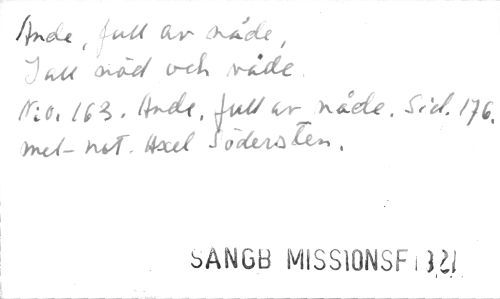 Ande, full av nåde,
I all nöd och våde.
N:o. 163. Ande, full av nåde. Sid. 176.
mel- not. Axel Södersten.
SANGB MISSIONSF 1321